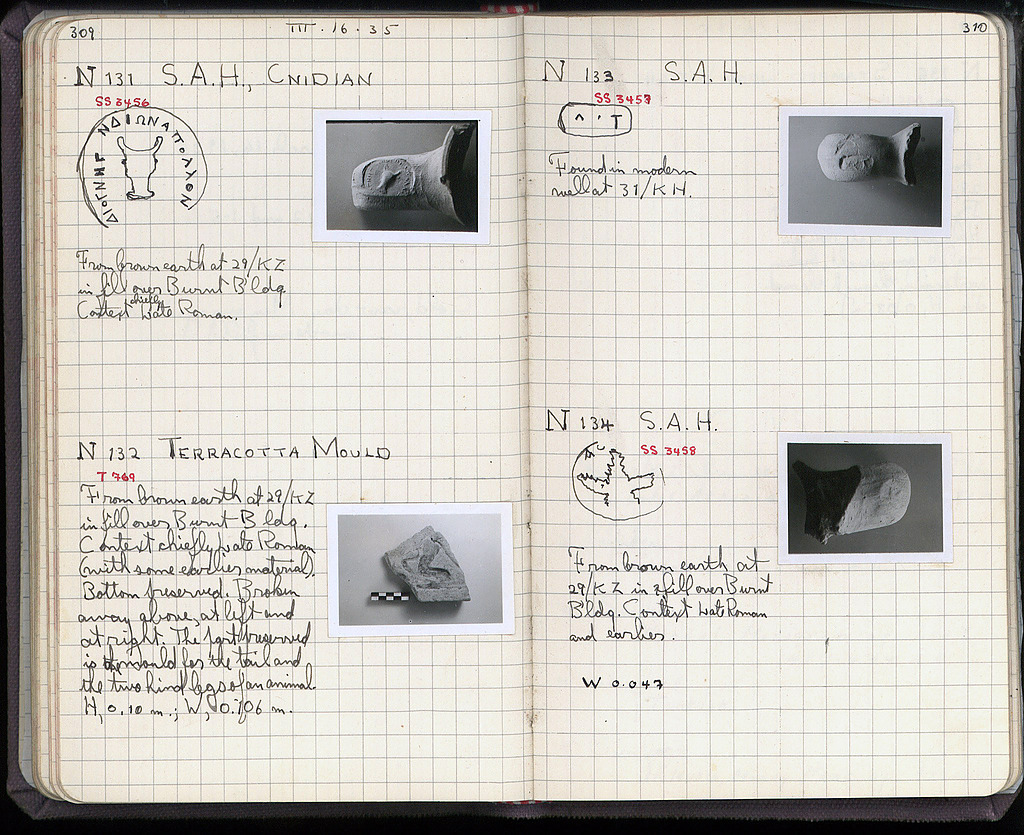 309
III · 16 · 35
N 131 S.A.H., CNIDIAN
SS 3456
ΔΙΟΓΝΗΤ ΝΔΙΩΝΑΠΟΛΛΟΝ
From brown earth at 29/KZ
in fill over Burnt Bldg.
Context chiefly Late Roman.
N 132 TERRACOTTA MOULD
T 769
From brown earth at 29/KZ
in fill over Burnt Bldg.
Context chiefly Late Roman
(with some earlier material).
Bottom preserved. Broken
away above, at left and
at right. The part preserved
is mould for the tail and
the two hind legs of an animal.
H, 0.10 m.; W, 0.106 m.
310
N 133 S.A.H.
SS 3457
Λ ' T
Found in modern
well at 31/KH.
N 134 S.A.H.
SS 3458
From brown earth at
29/KZ in fill over Burnt
Bldg. Context Late Roman
and earlier.
W 0.047